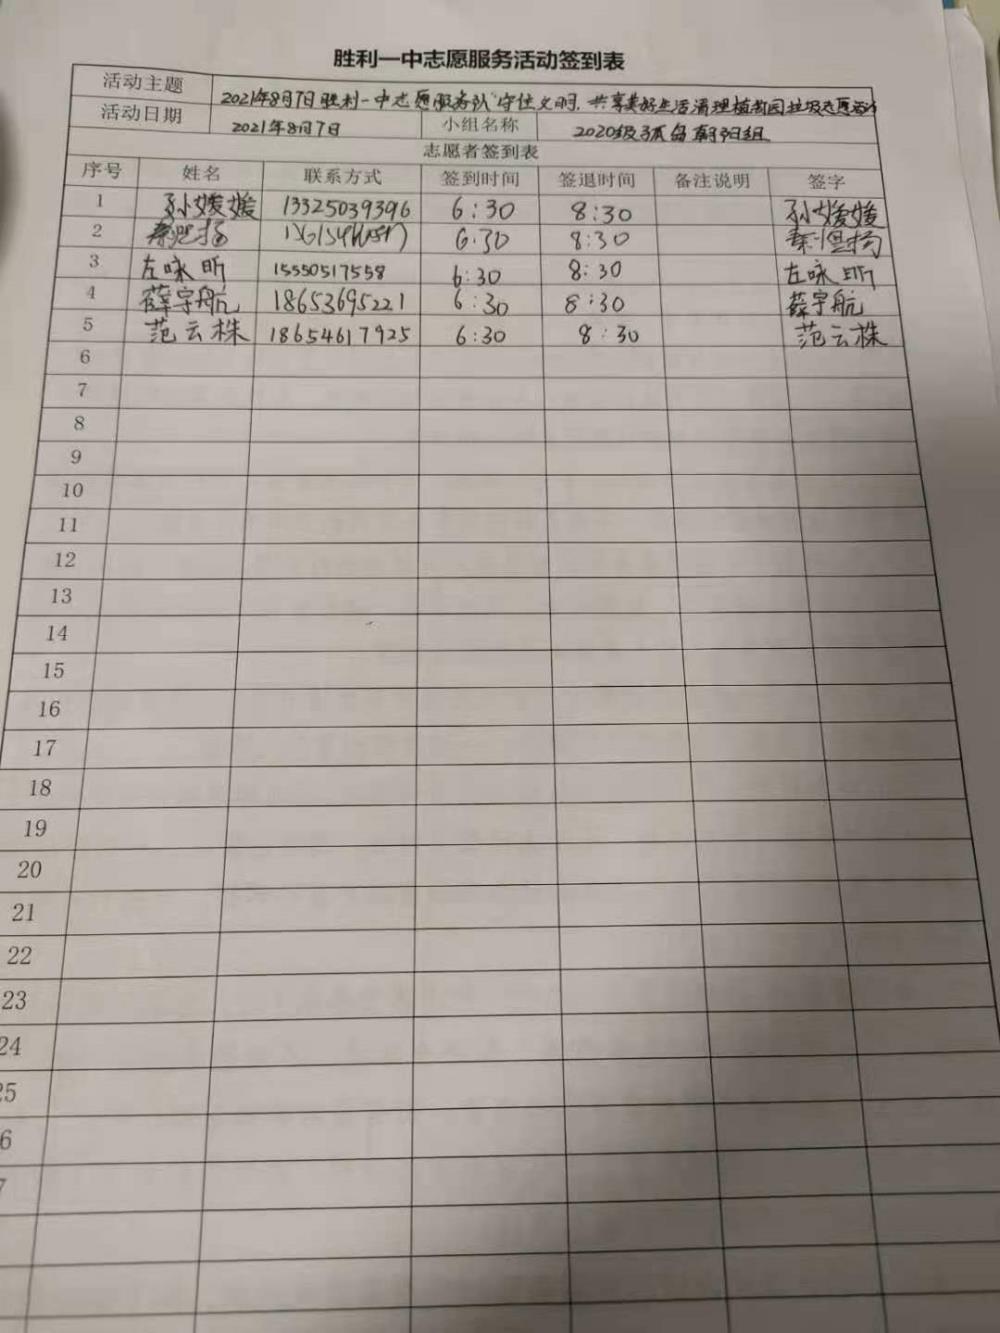 胜利一中志愿服务活动签到表
活动主题 2021年8月7日胜利一中志愿服务队"守住文明,共享美好生活清理植物园垃圾志愿活动
活动日期 2021年8月7日 小组名称 2020级孤岛朝阳组
志愿者签到表
序号 姓名 联系方式 签到时间 签退时间 备注说明 签字
1 孙媛媛 13325039396 6:30 8:30 孙媛媛
2 秦 扬 6:30 8:30 秦 扬
3 左咏昕 15550517558 6:30 8:30 左咏昕
4 薛宇航 18653695221 6:30 8:30 薛宇航
5 范云株 18654617925 6:30 8:30 范云株
6
7
8
9
10
11
12
13
14
15
16
17
18
19
20
21
22
23
24
25
6
7